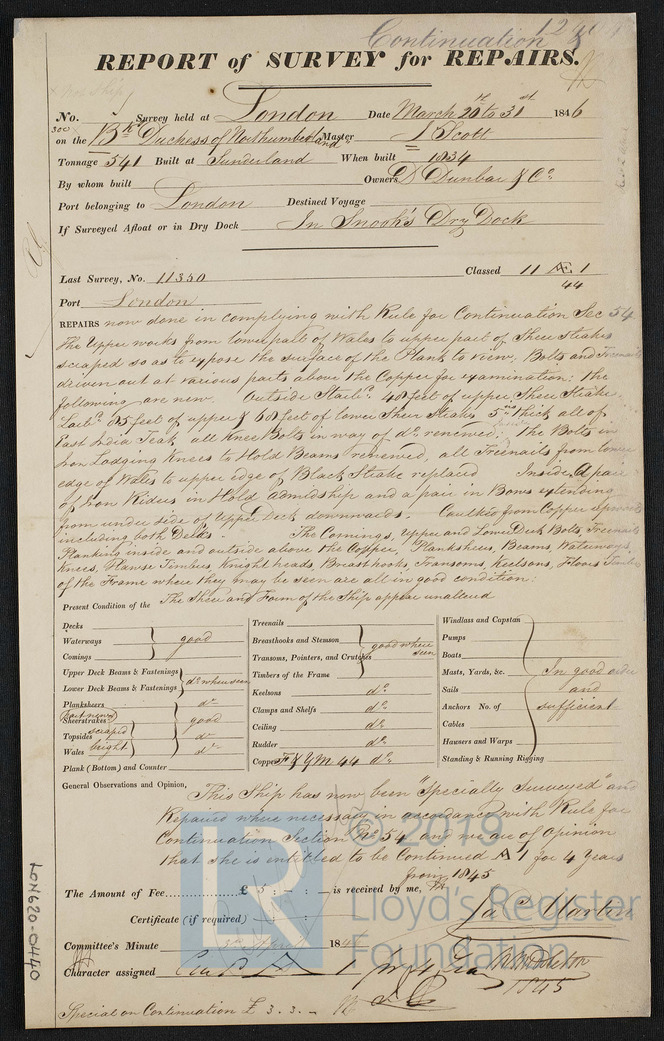 Continuation
REPORT of SURVEY for REPAIRS.
No. Survey held at London Date March 20th to 31st 1846
on the Bk Duchess of Northumberland Master J Scott
300
Tonnage 541 Built at Sunderland When built 1834
By whom built Owners D Dunbar & Co
Port belonging to London Destined Voyage
If Surveyed Afloat or in Dry Dock In Snook's Dry Dock
Last Survey, No. 11350 Classed 11 Æ 1
44
Port London
REPAIRS now done in complying with Rule for Continuation Sec 54
The Upper works from lower part of Wales to upper part of Sheer Strakes
scraped so as to expose the surface of the Plank to view. Bolts and Treenails
driven out at various parts above the Copper for examination: the
following are new. Outside Starbd. 48 feet of upper Sheer Strake
Larbd. 85 feet of upper & 60 feet of lower Sheer Strake 5 in thick all of
East India Teak all Knee Bolts in way of do renewed; the Bolts in
Iron Lodging Knees to Hold Beams renewed, all Treenails from lower
edge of Wales to upper edge of Black Strake replaced Inside, A pair
of Iron Riders in Hold amidship and a pair in Bows extending
from under side of Upper Deck downwards. Caulked from Copper upwards
including both Decks. The Comings, Upper and Lower Deck Bolts, Treenails
Planking inside and outside above the Copper, Planksheers, Beams, Waterways,
Knees, Hawse Timbers, Knight heads, Breasthooks, Transoms, Keelsons, Floors Timbers
of the Frame where they may be seen are all in good condition:
Present Condition of the The Sheer and Form of the Ship appear unaltered
Decks
Waterways good
Comings
Upper Deck Beams & Fastenings
Lower Deck Beams & Fastenings do where seen
Planksheers do
part new
Sheerstrakes good
scraped
Topsides do
Wales bright do
Plank (Bottom) and Counter
Treenails
Breasthooks and Stemson good where seen
Transoms, Pointers, and Crutches
Timbers of the Frame
Keelsons do
Clamps and Shelfs do
Ceiling do
Rudder do
Copper F & YM 44 do
Windlass and Capstan
Pumps
Boats
Masts, Yards, &c. In good order
Sails and
Anchors No. of sufficient
Cables
Hawsers and Warps
Standing & Running Rigging
General Observations and Opinion, This Ship has now been "Specially Surveyed" and
Repaired where necessary in accordance with Rule for
Continuation Section No 54 and we are of Opinion
that she is entitled to be Continued A 1 for 4 Years
from 1845
The Amount of Fee £ 5 : - : - is received by me,
Jas Martin
Certificate (if required)
Committee's Minute 184
Character assigned A 1
1845
Special on Continuation £ 3. 3. -
LON620-0440
© 2019
LR
Lloyd's Register
Foundation